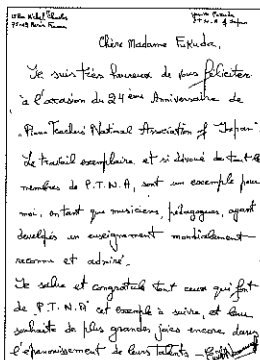 75019 Paris France
Chère Madame Fukuda,
Je suis très heureux de vous féliciter
à l'occasion du 24ème Anniversaire de
"Piano Teachers' National Association of Japan"
Le travail exemplaire et si dévoué de tout les
membres de P.T.N.A, sont un exemple pour
moi, en tant que musicien, pédagogues, ayant
développés un enseignement mondialement
reconnu et admiré.
Je salue et congratule tout ceux qui font
de "P.T.N.A" cet exemple à suivre, et leur
souhaite de plus grandes joies encore, dans
l'épanouissement de leurs talents